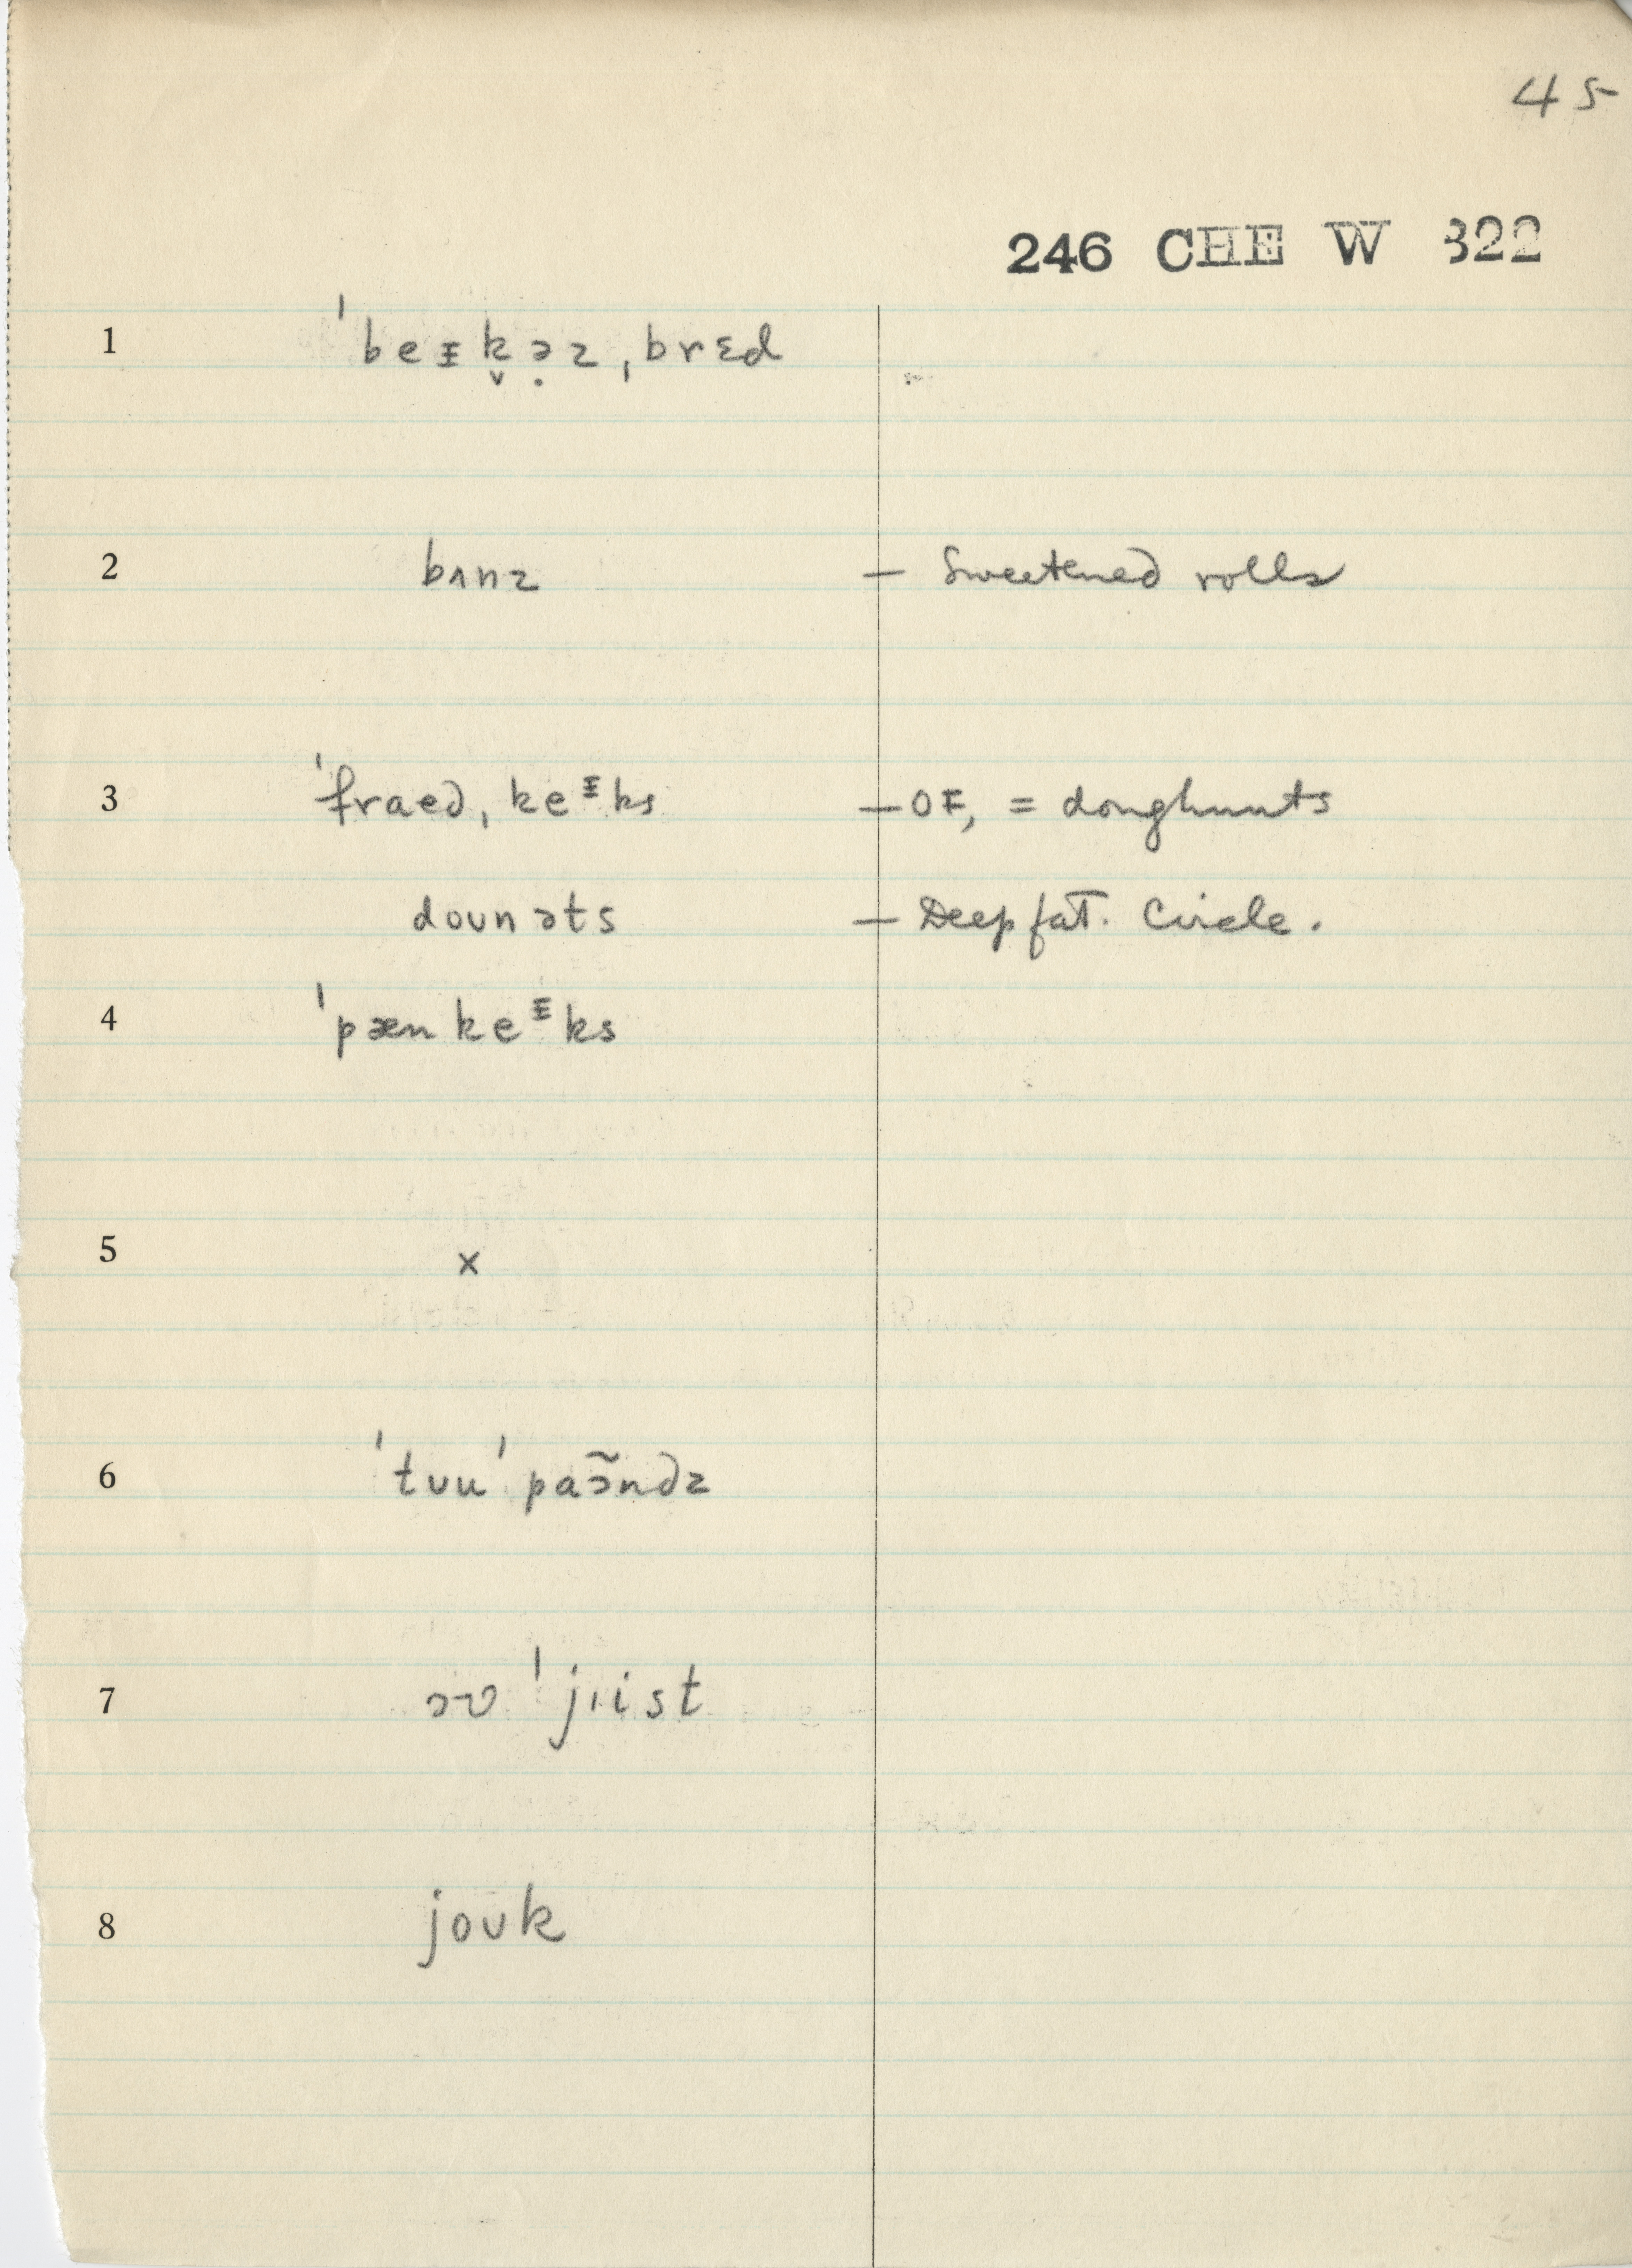 45
246 CHE W 322
1 ˈbeᵻk̬ə̣z ˌbrɛd
2 bʌnz — Sweetened rolls
3 ˈfraed ˌkeᵻks — OF, = doughnuts
doʊnəts — Deep fat. Circle.
4 ˈpænkeᵻks
5 x
6 ˈtʊu ˈpaɔ̃ndz
7 əv ˈjɪist
8 joʊk